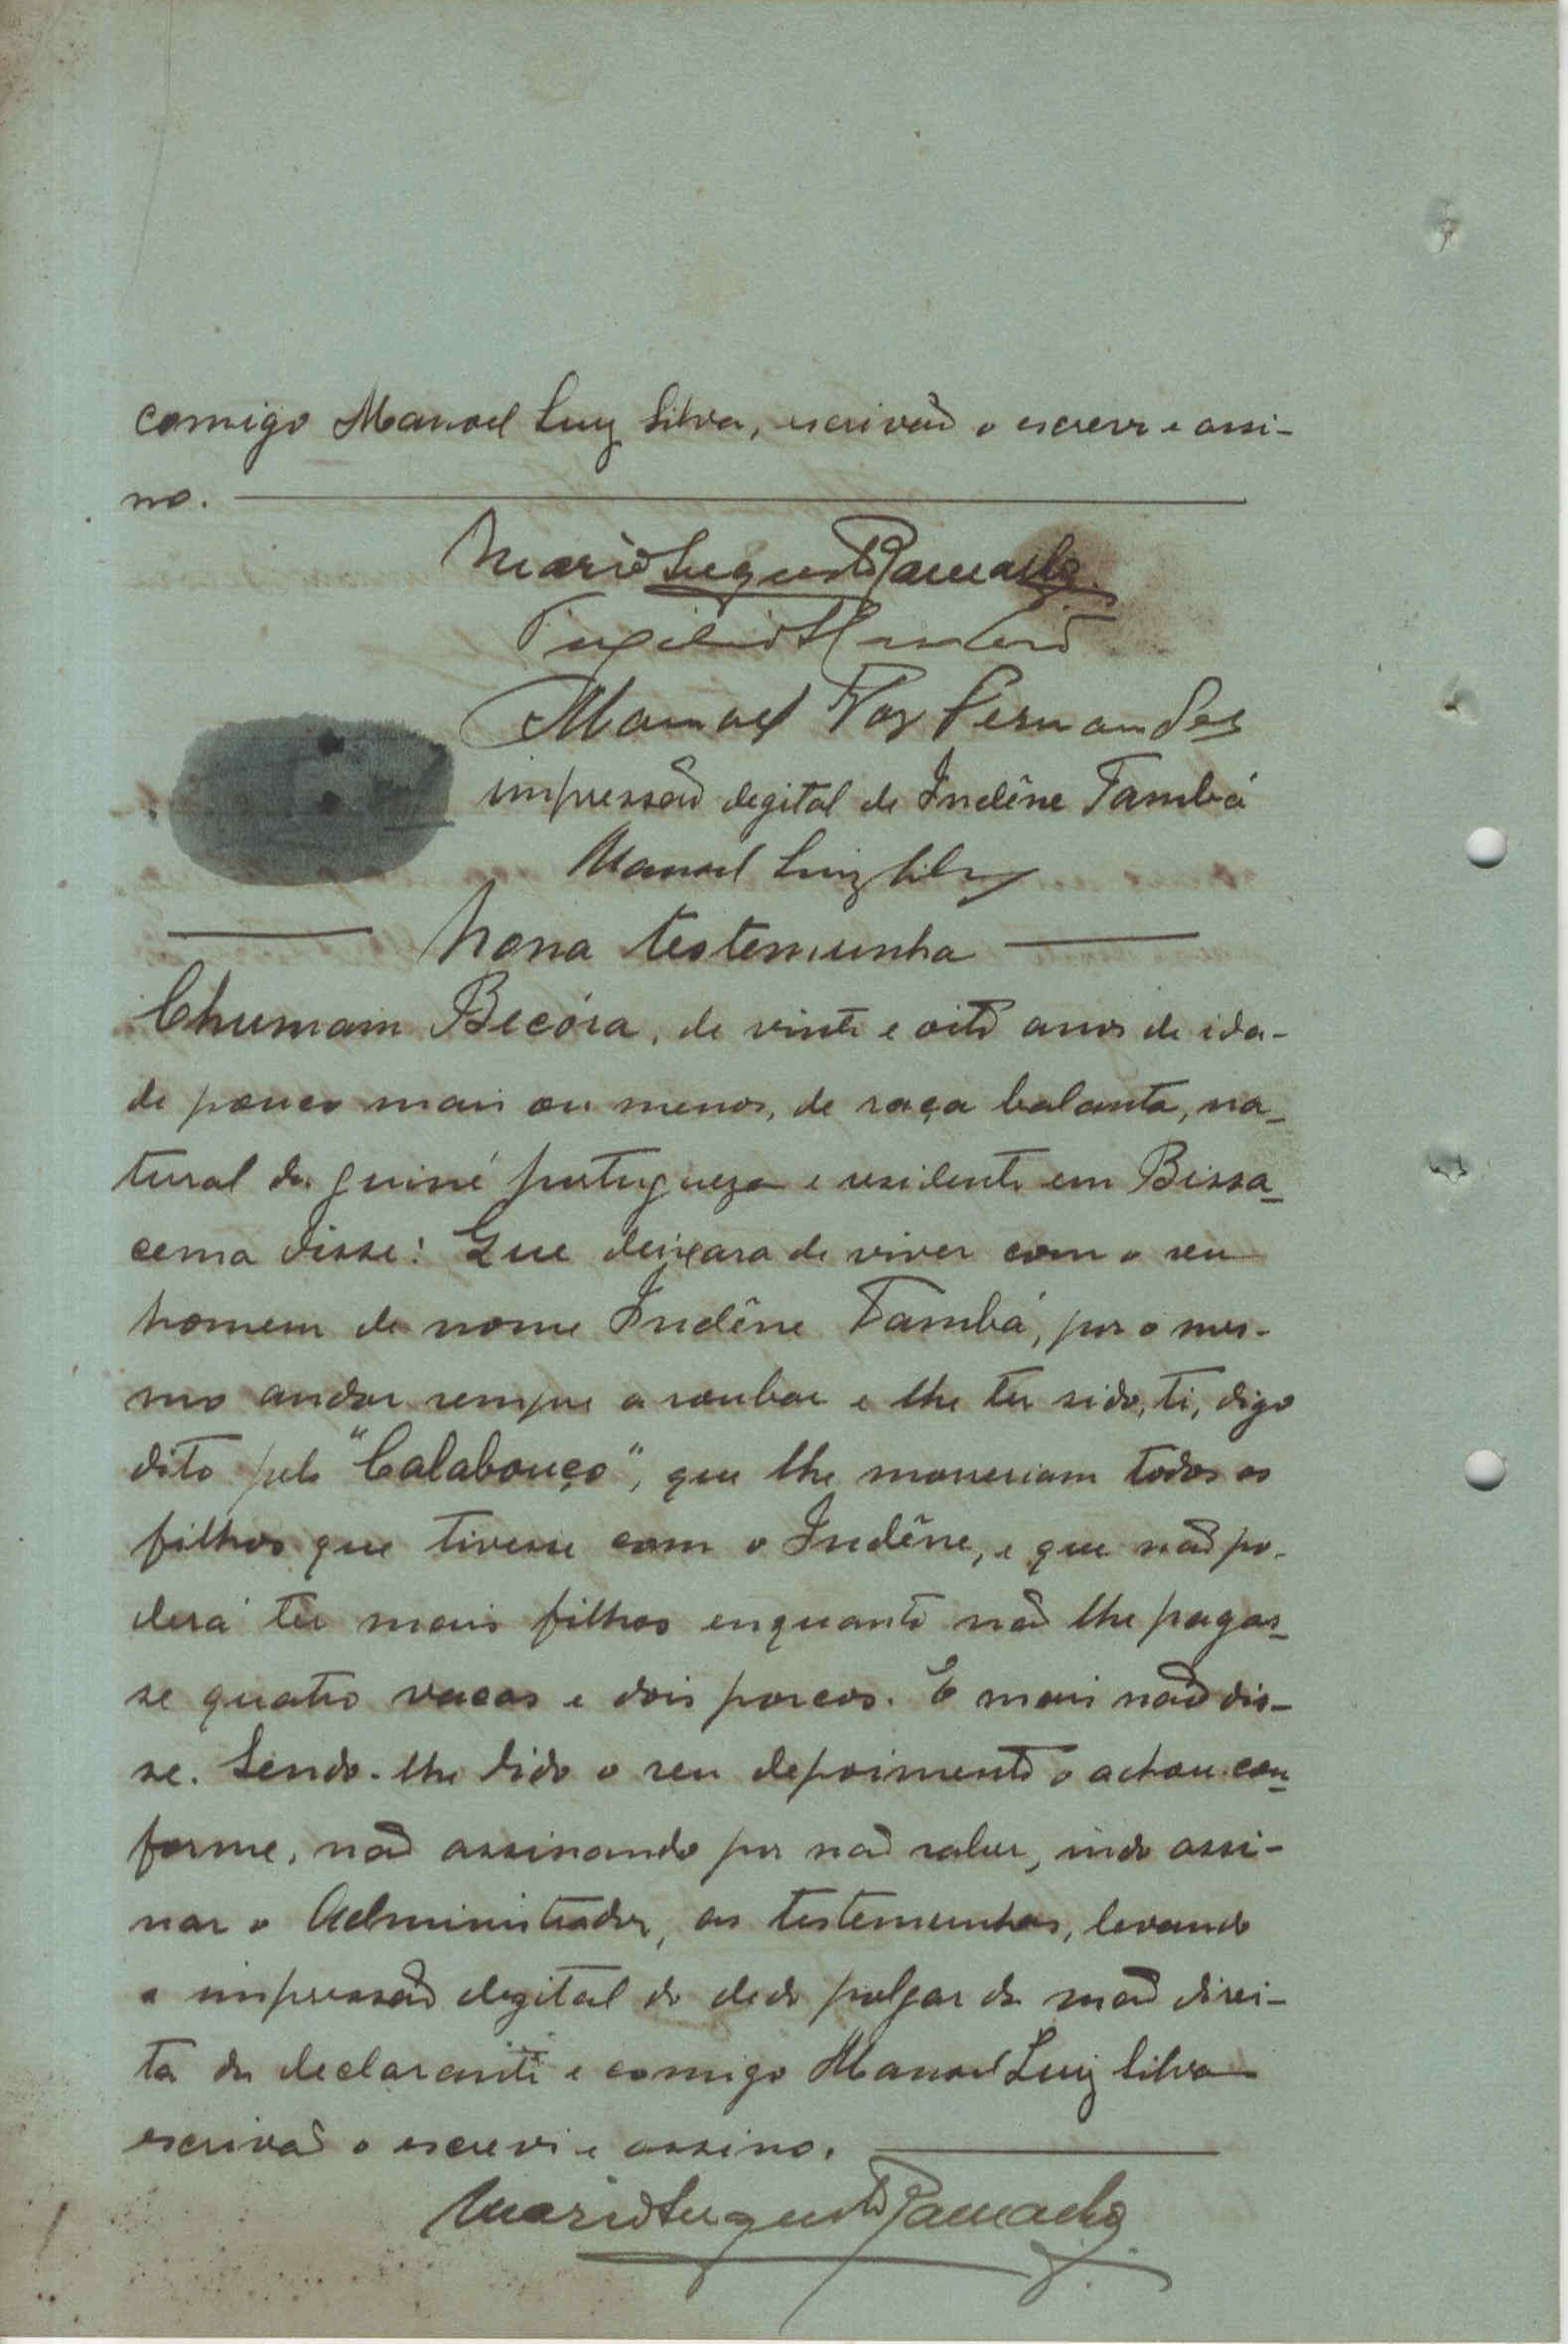 comigo Manoel Luiz Silva, escrivão o escrevi e assi-
no.
Mario Augusto Ramacho
Manoel Vaz Fernandes
impressão degital de Indêne Tambá
Manoel Luiz Silva
Nona testemunha
Chumam Becóra, de vinte e oito anos de ida-
de pouco mais ou menos, de raça balanta, na-
tural da guiné portugueza e residente em Bissa-
cema disse: Que deixara de viver com o seu
homem de nome Indêne Tambá, por o mes-
mo andar sempre a roubar e lhe ter sido, ti, digo
dito pelo "Calabouço", que lhe morreriam todos os
filhos que tivesse com o Indêne, e que não po-
derá ter mais filhos enquanto não lhe pagas-
se quatro vacas e dois porcos. E mais não dis-
se. Sendo-lhe lido o seu depoimento o achou con-
forme, não assinando por não saber, indo assi-
nar o Administrador, as testemunhas, levando
a impressão degital do dedo pulgar da mão direi-
ta da declarante e comigo Manoel Luiz Silva
escrivão o escrevi e assino.
Mario Augusto Ramacho